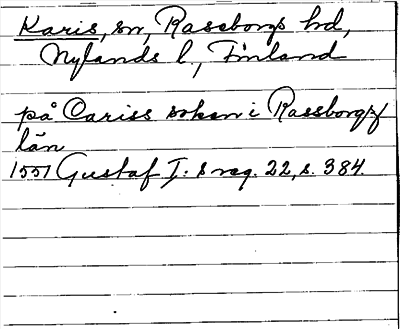 Karis, sn, Raseborgs hd,
Nylands l., Finland
på Cariss soken i Rassborgz
län
1551 Gustaf I: s reg. 22, s. 384.